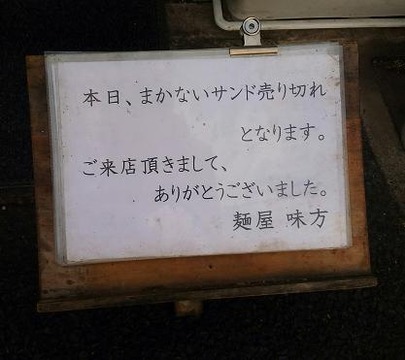 本日、まかないサンド売り切れ
となります。
ご来店頂きまして、
ありがとうございました。
麺屋 味方